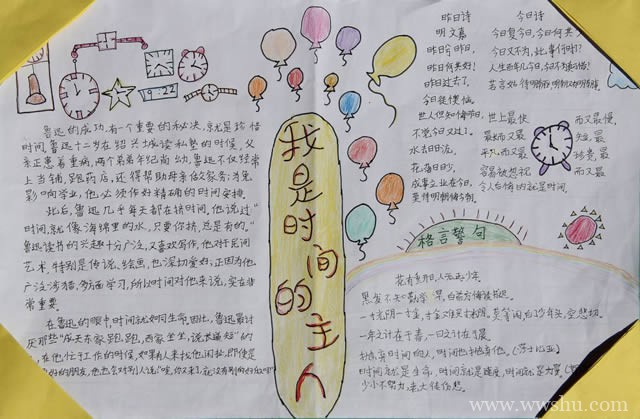 我是时间的主人
19:22
鲁迅的成功,有一个重要的秘诀,就是珍惜
时间。鲁迅十二岁在绍兴城读私塾的时候,父
亲正患着重病,两个弟弟年纪尚幼,鲁迅不仅经常
上当铺,跑药店,还得帮助母亲做家务;为免
影响学业,他必须作好精确的时间安排。
此后,鲁迅几乎每天都在挤时间。他说过:"
时间,就像海绵里的水,只要你挤,总是有的。"
鲁迅读书的兴趣十分广泛,又喜欢写作,他对民间
艺术,特别是传说、绘画,也深切爱好;正因为他
广泛涉猎,多方面学习,所以时间对他来说,实在非
常重要。
在鲁迅的眼中,时间就如同生命。因此,鲁迅最讨
厌那些"成天东家跑跑,西家坐坐,说长道短"的
人,在他忙于工作的时候,如果有人来找他
昨日诗
明 文嘉
昨日兮昨日,
昨日何其好!
昨日过去了,
今日徒懊恼。
世人但知悔昨日,
不觉今日又过了。
水去日日流,
花落日日少。
成事立业在今日,
莫待明朝悔今朝。
今日诗
今日复今日,今日何其少!
今日又不为,此事何时了?
人生百年几今日,今日不为真可惜!
若言姑待明朝至,明朝又有明朝事。
世上最快
而又最慢,
最长而又最
短,最
平凡而又最
珍贵,最
容易被忽视
而又最
令人后悔的就是时间。
格言警句
花有重开日,人无再少年
黑发不知勤学早,白首方悔读书迟。
一寸光阴一寸金,寸金难买寸光阴。莫等闲,白了少年头,空悲切。
一年之计在于春,一日之计在于晨
抛弃时间的人,时间也抛弃他。(莎士比亚)
时间就是生命,时间就是速度,时间就是力量。
少小不努力,老大徒伤悲。
www.wwshu.com